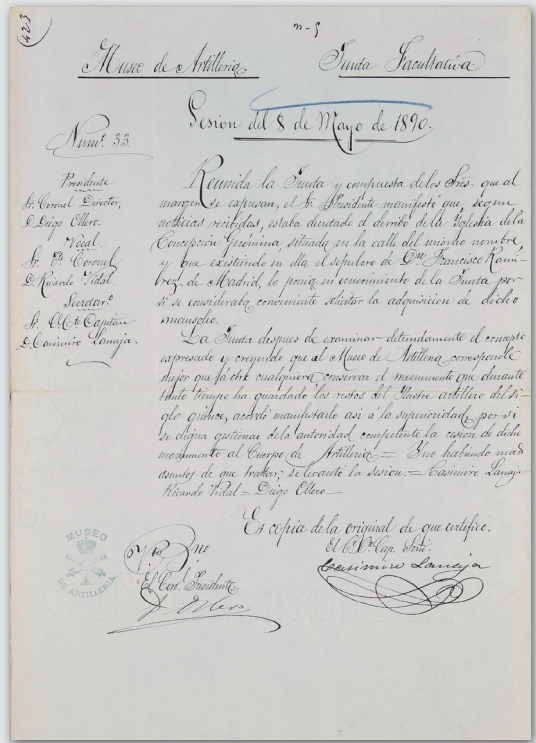 423
n-5
Museo de Artilleria    Junta Facultativa
Sesion del 8 de Mayo de 1890.
Numº. 33.
Presidente
Sr. Coronel Director,
D. Diego Ollero.
Vocal
Sr. Tte. Coronel
D. Ricardo Vidal.
Secretarº
Sr. Cte. Capitan
D. Casimiro Lanaja.
Reunida la Junta y compuesta de los Sres. que al
margen se expresan, el Sr. Presidente manifestó que, segun
noticias recibidas, estaba decretado el derribo de la Iglesia de la
Concepción Gerónima, situada en la calle del mismo nombre,
y que existiendo en ella el sepulcro de Dn. Francisco Rami-
rez de Madrid, lo ponia en conocimiento de la Junta por
si se consideraba conveniente solicitar la adquisicion de dicho
mausoleo.
La Junta despues de examinar detenidamente el concepto
expresado y creyendo que al Museo de Artilleria corresponde
mejor que á otro cualquiera, conservar el monumento que durante
tanto tiempo ha guardado los restos del Ilustre artillero del si-
glo quince, acordó manifestarlo asi a la superioridad, por si
se digna gestionar de la autoridad competente la cesion de dicho
monumento al Cuerpo de Artilleria.= Y no habiendo mas
asuntos de que tratar, se levantó la sesion.= Casimiro Lanaja
Ricardo Vidal = Diego Ollero—
Es copia de la original de que certifico.
El Cte. Cap. Sctrº.
Casimiro Lanaja
Vto. Bno
El Corl. Presidente
D. Ollero
MUSEO
DE ARTILLERIA